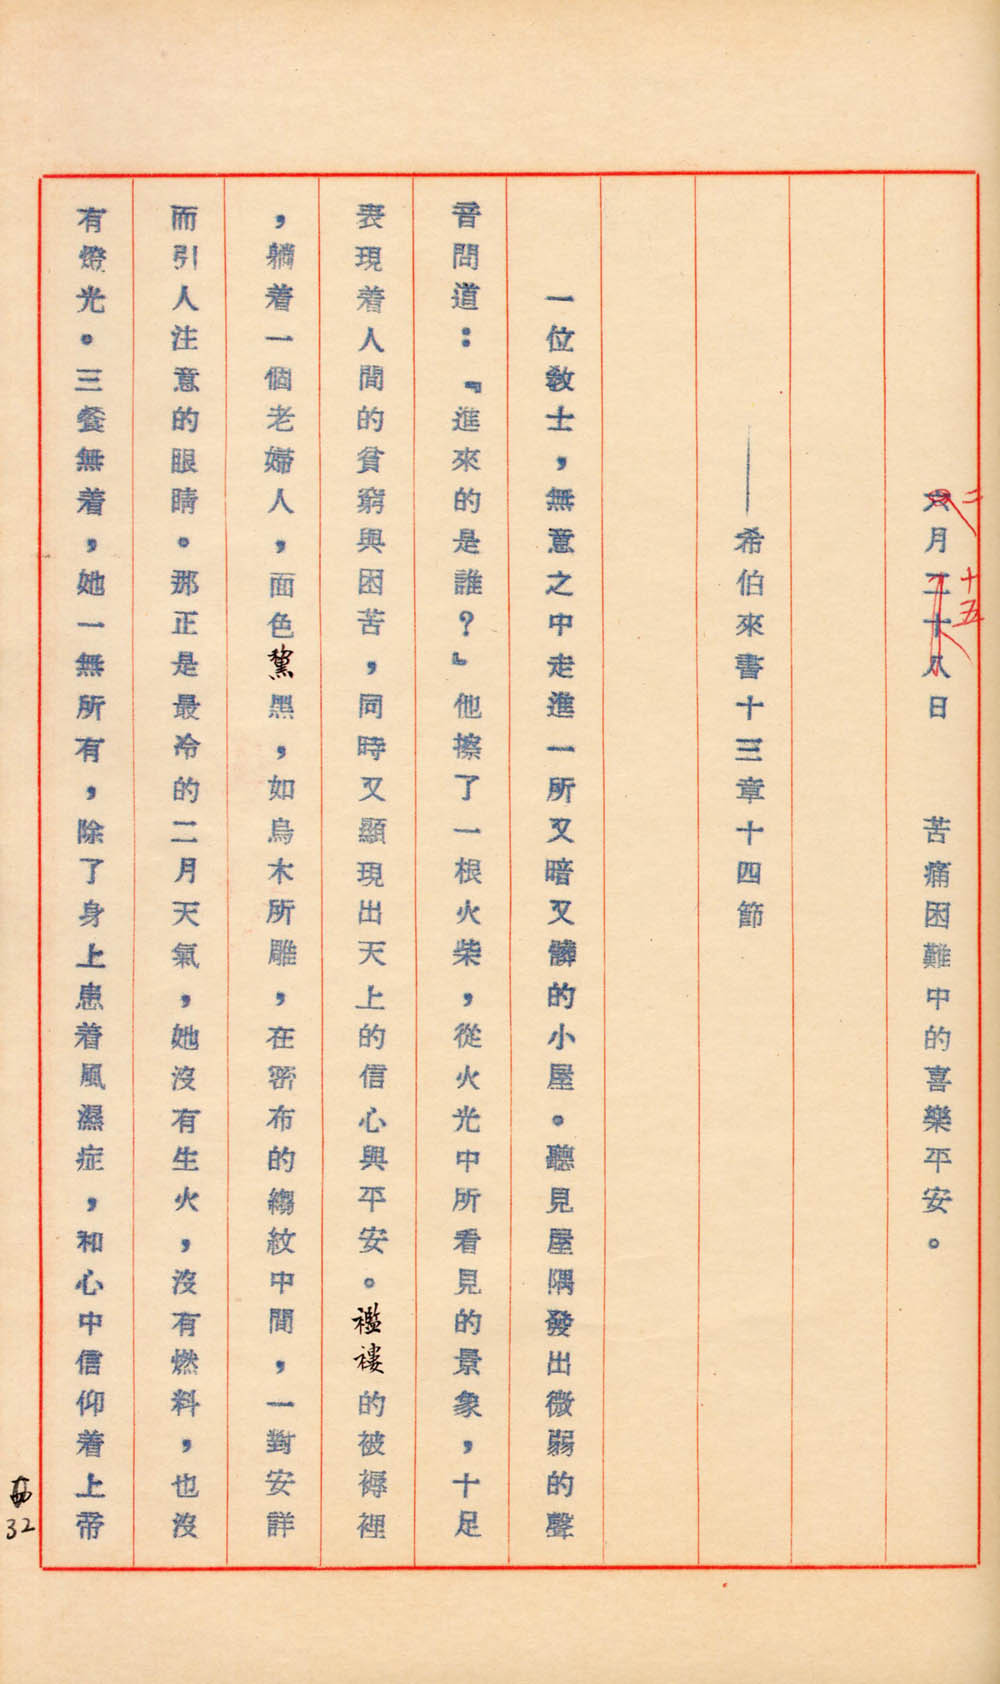 六月二十八日　苦痛困難中的喜樂平安。
二
十五
——希伯來書十三章十四節
一位教士，無意之中走進一所又暗又髒的小屋。聽見屋隅發出微弱的聲
音問道：『進來的是誰？』他擦了一根火柴，從火光中所看見的景象，十足
表現着人間的貧窮與困苦，同時又顯現出天上的信心與平安。襤褸的被褥裡
，躺着一個老婦人，面色黧黑，如烏木所雕，在密布的縐紋中間，一對安詳
而引人注意的眼睛。那正是最冷的二月天氣，她沒有生火，沒有燃料，也沒
有燈光。三餐無着，她一無所有，除了身上患着風濕症，和心中信仰着上帝
32